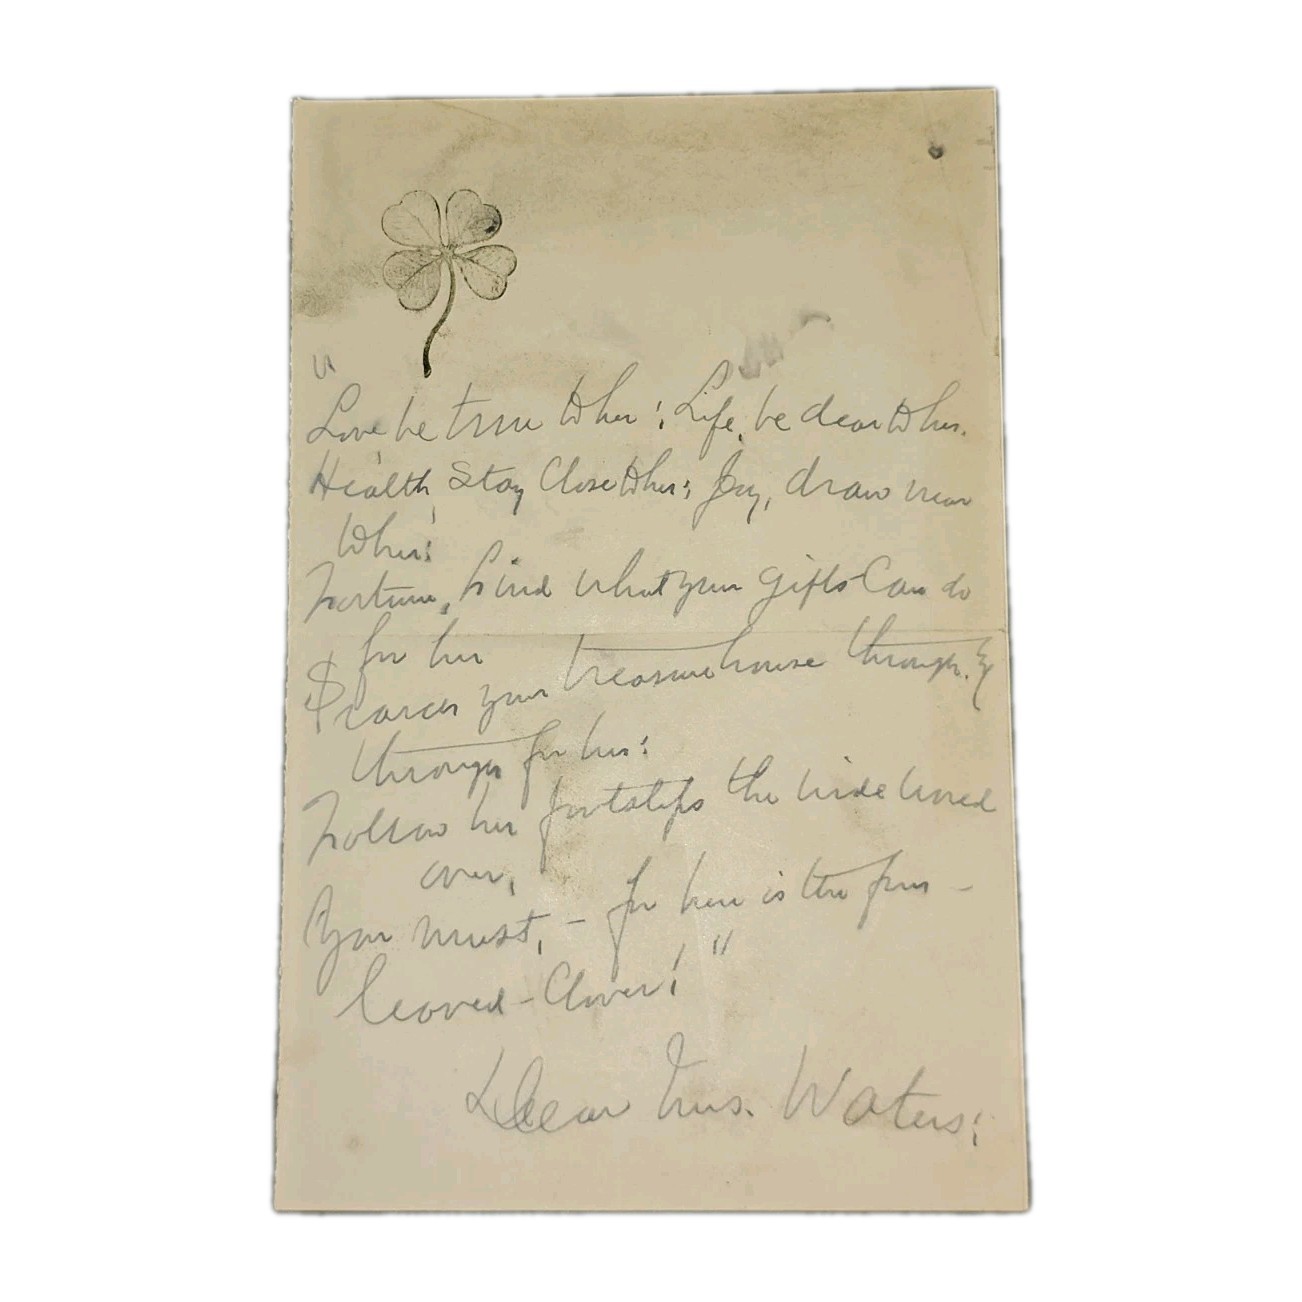 "
Love be true to her; Life, be dear to her.
Health, Stay Close to her; Joy, draw near
to her;
Fortune, find what your gifts Can do
for her
Search your treasure house through &
through for her;
Follow her footsteps the wide world
over,
You must, - for here is the four -
leaved - Clover! "
Dear Mrs. Waters;